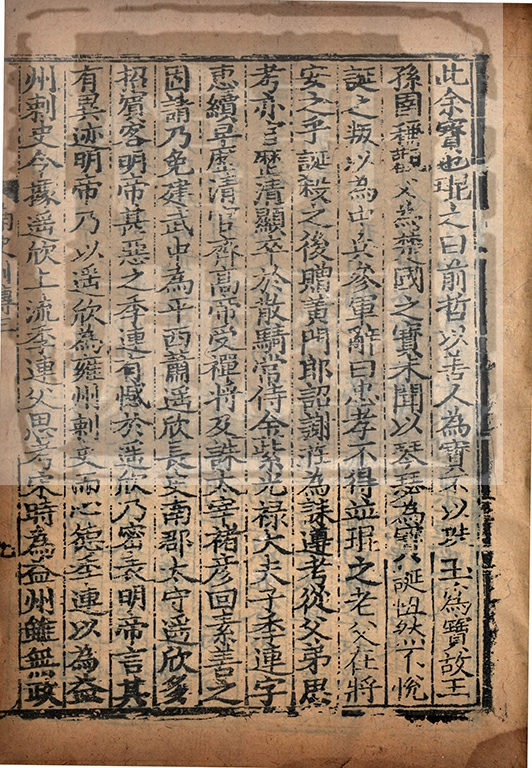 此余寶也琨之曰前哲以善人為寶不以珠玉為寶故王
孫圉稱觀父為楚國之寶未聞以琴瑟為寶誕忸然不悅
誕之叛以為中兵參軍辭曰忠孝不得並琨之老父在將
安之乎誕殺之後贈黄門郎詔謝莊為誄遵考從父弟思
考亦官歷清顯卒於散騎常侍金紫光禄大夫子季連字
惠續早歷清官齊高帝受禪將及誅太宰褚彦回素善之
固請乃免建武中為平西蕭遥欣長史南郡太守遥欣多
招賓客明帝甚惡之季連有憾於遥欣乃密表明帝言其
有異迹明帝乃以遥欣為雍州刺史而心德季連以為益
州刺史令據遥欣上流季連父思考宋時為益州雖無政